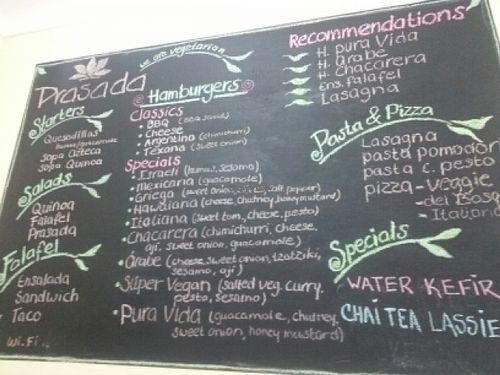 we are vegetarian
Prasada
Starters
Quesadillas
Sopa Azteca
Sopa Quinoa
Salads
Quinoa
Falafel
Prasada
Falafel
Ensalada
Sandwich
Taco
Wi.Fi
Hamburgers
Classics
• BBQ (BBQ sauce)
• Cheese
• Argentina (chimichurri)
• Texana (sweet onion)
Specials
• Israeli (humus, sesamo)
• Mexicana (guacamole)
• Griega (sweet onion,
• Hawaiiana (cheese, chutney, honey mustard)
• Italiana (sweet tom, cheese, pesto)
• Chacarera (chimichurri, cheese,
aji, sweet onion, guacamole)
• Arabe (cheese, sweet onion, tzatziki,
sesamo, aji)
• Súper Vegan (salted veg. curry,
pesto, sesamo)
• Pura Vida (guacamole, chutney,
sweet onion, honey mustard)
Recommendations
H. Pura Vida
H. Arabe
H. Chacarera
Ens. Falafel
Lasagna
Pasta & Pizza
Lasagna
pasta pomodor
pasta c. pesto
pizza - veggie
- del Bosq
- Italian
Specials
WATER KEFIR
CHAI TEA LASSIE